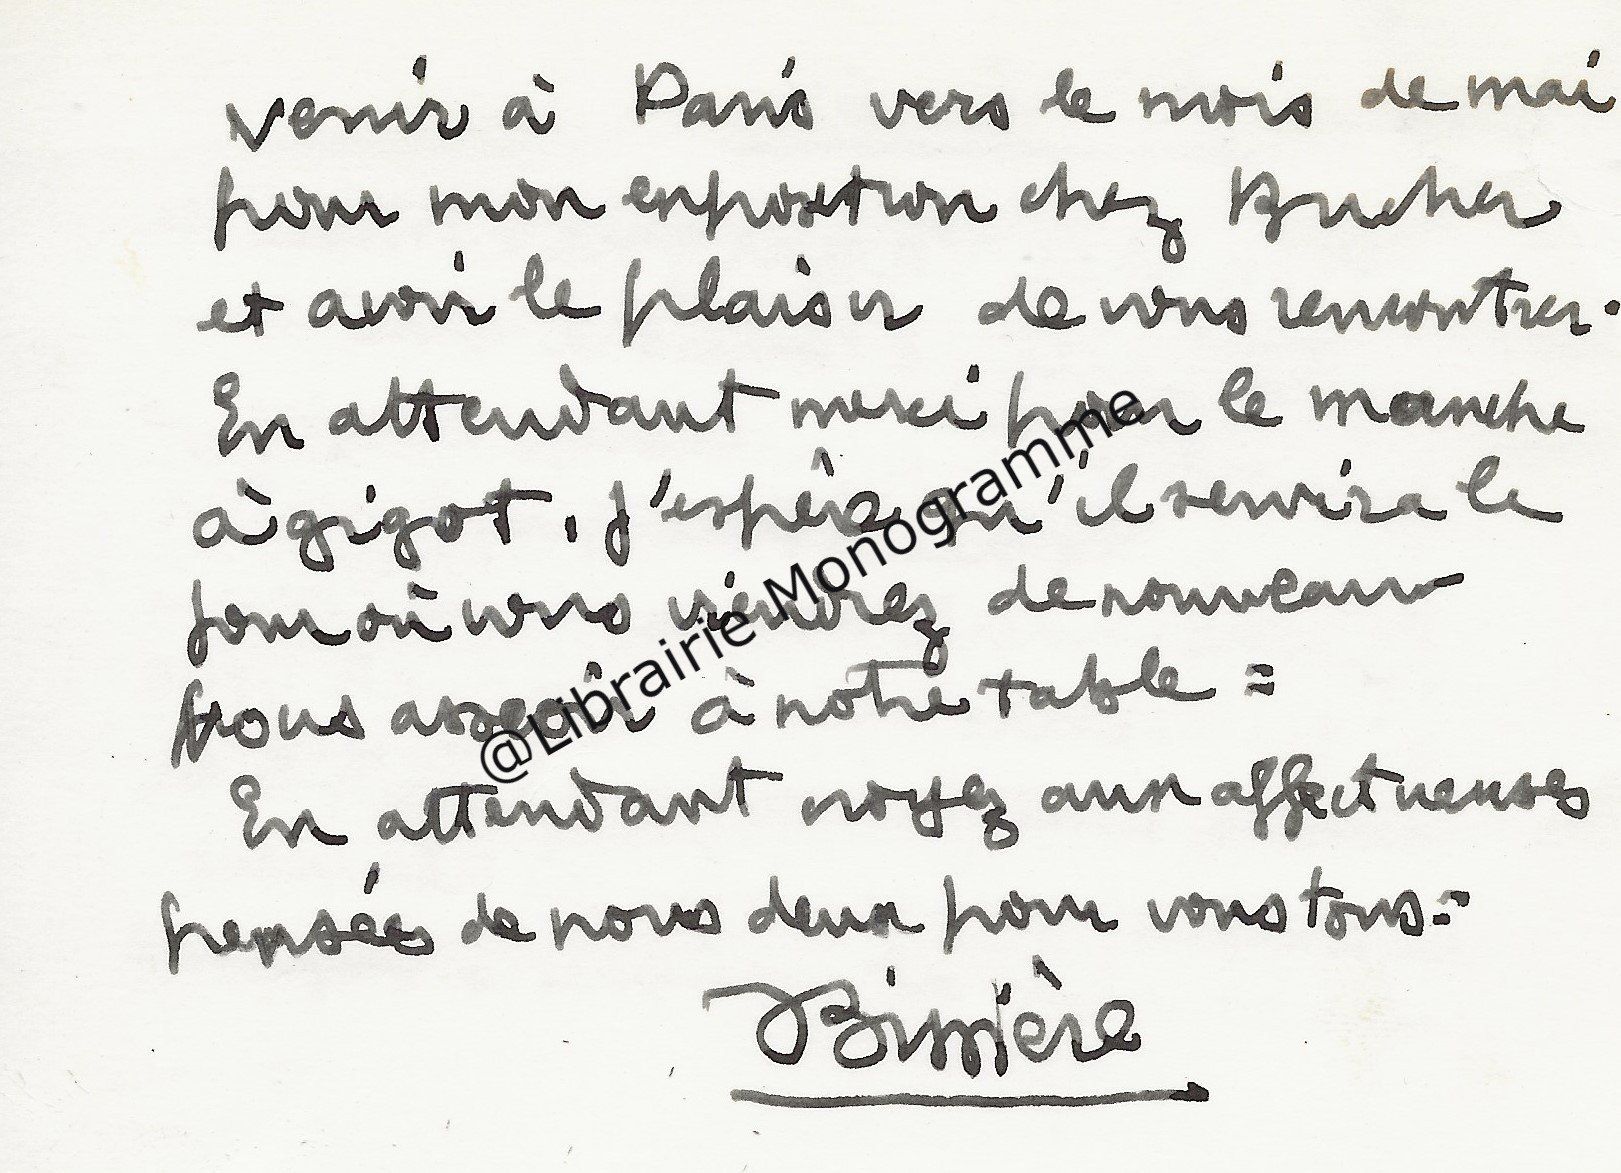 venir à Paris vers le mois de mai
pour mon exposition chez Bucher
et avoir le plaisir de vous rencontrer.
En attendant merci pour le manche
à gigot, j'espère qu'il servira le
jour où vous viendrez de nouveau
vous asseoir à notre table =
En attendant voyez aux affectueuses
pensées de nous deux pour vous tous =
Bissière
@Librairie Monogramme